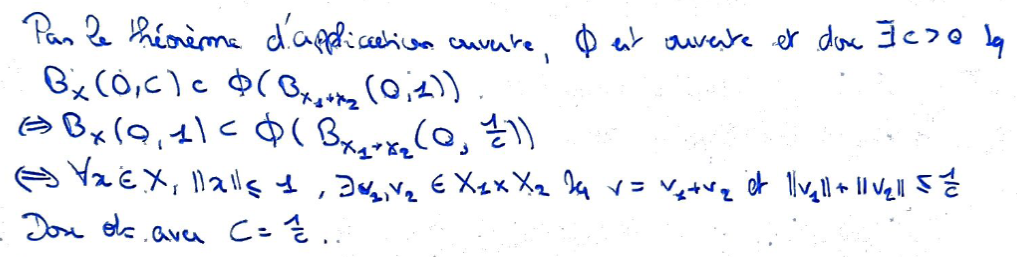 Par le théorème d'application ouverte, Φ est ouverte et donc ∃c>0 tq
B_X(0,c) ⊂ Φ(B_{X_1×X_2}(0,1)).
⇔ B_X(0,1) ⊂ Φ(B_{X_1×X_2}(0, 1/c))
⇔ ∀x ∈ X, ||x|| ≤ 1, ∃v_1,v_2 ∈ X_1×X_2 tq v = v_1+v_2 et ||v_1||+||v_2|| ≤ 1/c
Donc ok avec C = 1/c..